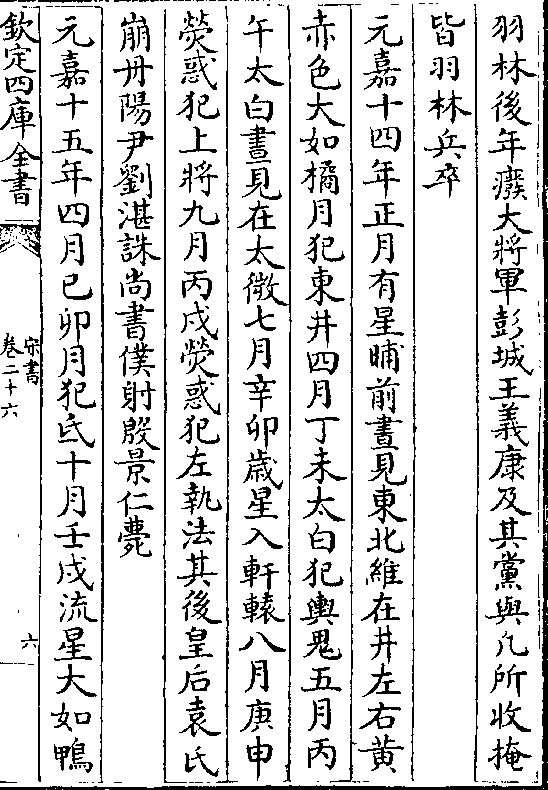 羽林後年癈大將軍彭城王義康及其黨與凡所收掩
皆羽林兵卒
元嘉十四年正月有星晡前晝見東北維在井左右黄
赤色大如橘月犯東井四月丁未太白犯輿鬼五月丙
午太白晝見在太微七月辛卯歳星入軒轅八月庚申
熒惑犯上將九月丙戌熒惑犯左執法其後皇后袁氏
崩丹陽尹劉湛誅尚書僕射殷景仁薨
元嘉十五年四月已卯月犯氐十月壬戌流星大如鴨
欽定四庫全書
宋書
卷二十六
六